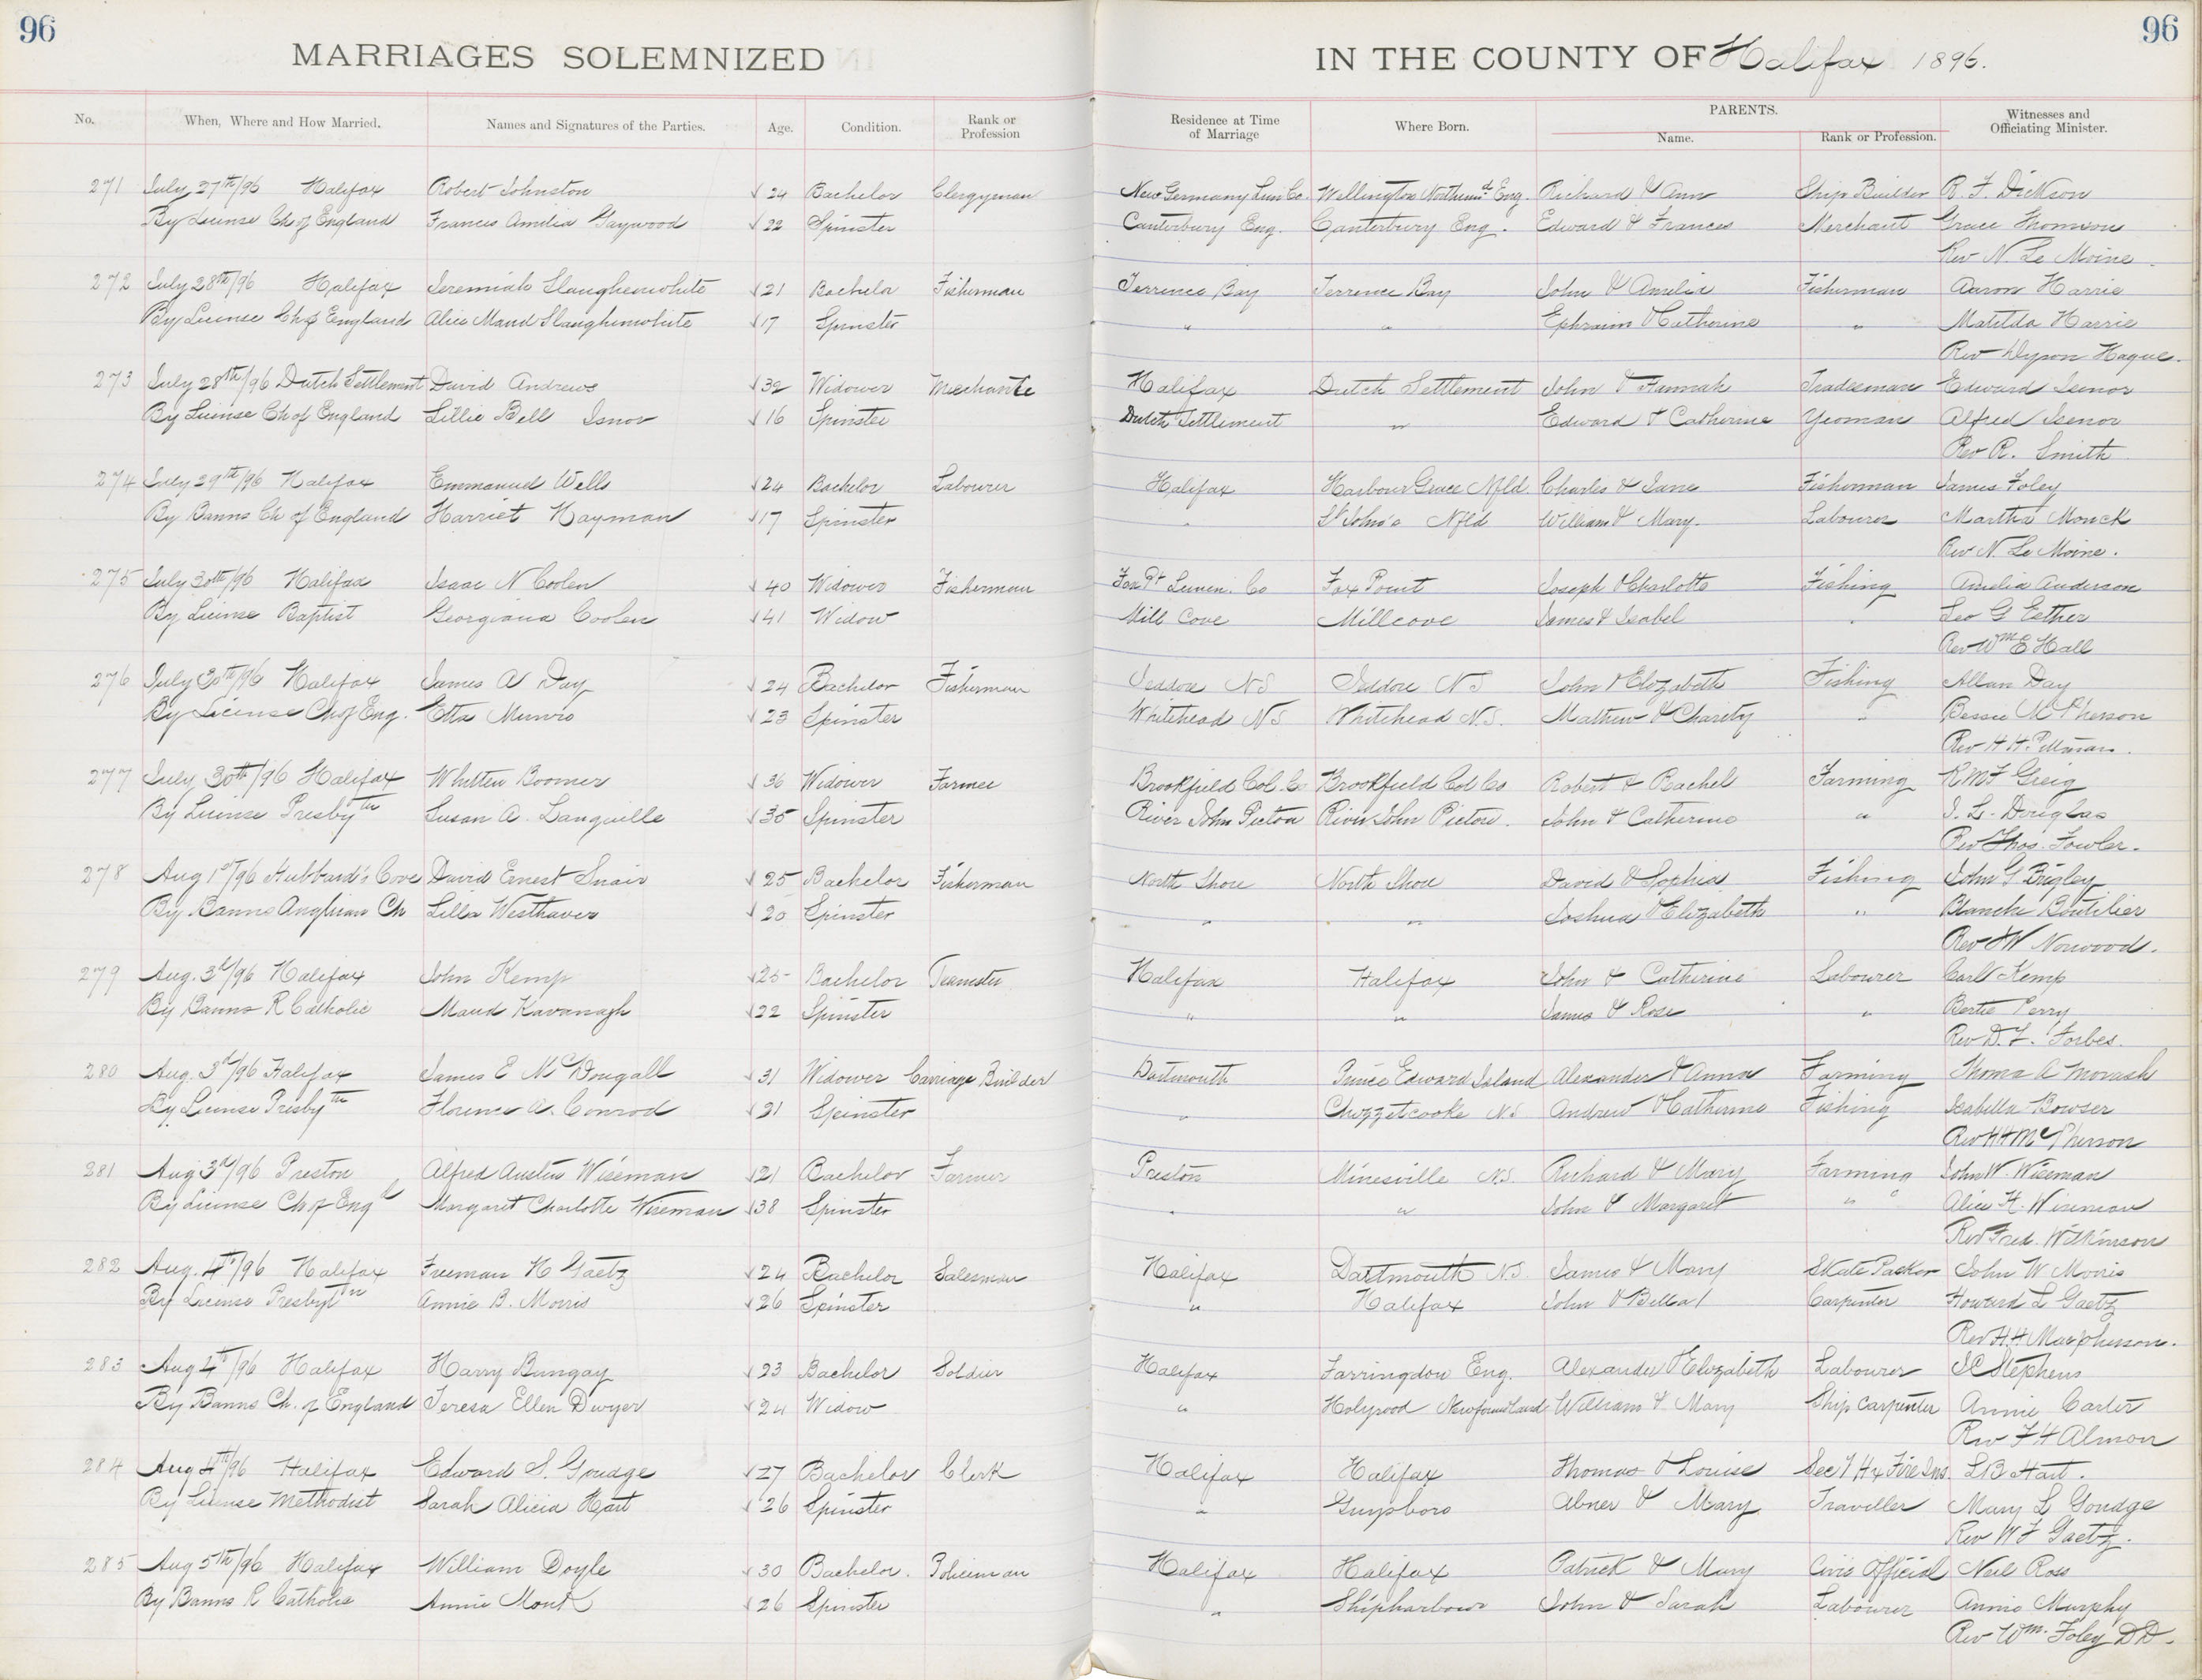 96
96
MARRIAGES SOLEMNIZED IN THE COUNTY OF Halifax 1896.
No. When, Where and How Married. Names and Signatures of the Parties. Age. Condition. Rank or Profession Residence at Time of Marriage Where Born. PARENTS. Name. Rank or Profession. Witnesses and Officiating Minister.
271 July 27th/96 Halifax Robert Johnston √ 24 Bachelor Clergyman New Germany Lun Co. Wellington Northumd Eng. Richard & Ann Ship Builder R. F. Dickson
By License Ch of England Frances Amelia Gaywood √ 22 Spinster Canterbury Eng. Canterbury Eng. Edward & Frances Merchant Grace Thomson
Rev N. Le Moine.
272 July 28th/96 Halifax Jeremiah Slaughenwhite √ 21 Bachelor Fisherman Terrence Bay Terrence Bay John & Amelia Fisherman Aaron Harrie
By License Ch of England Alice Maud Slaughenwhite √ 17 Spinster " " Ephraim & Catherine " Matilda Harrie
Rev Dyson Hague.
273 July 28th/96 Dutch Settlement David Andrews √ 32 Widower Mechanic Halifax Dutch Settlement John & Hannah Tradesman Edward Isenor
By License Ch of England Lillie Bell Isnor √ 16 Spinster Dutch Settlement " Edward & Catherine Yeoman Alfred Isenor
Rev R. Smith
274 July 29th/96 Halifax Emmanuel Wells √ 24 Bachelor Labourer Halifax Harbour Grace Nfld Charles & Jane Fisherman James Foley
By Banns Ch of England Harriet Hayman √ 17 Spinster " St John's Nfld William & Mary. Labourer Martha Monck
Rev N. Le Moine.
275 July 30th/96 Halifax Isaac N Coolen √ 40 Widower Fisherman Fox Pt Lunen. Co Fox Point Joseph & Charlotte Fishing Amelia Anderson
By License Baptist Georgiana Coolen √ 41 Widow Mill Cove Millcove James & Isabel " Geo G Esther
Rev Wm E Hall
276 July 30th/96 Halifax James A Day √ 24 Bachelor Fisherman Jeddore NS Jeddore NS John & Elizabeth Fishing Allan Day
By License Ch of Eng. Etta Munro √ 23 Spinster Whitehead NS Whitehead N.S. Mathew & Charity " Bessie McPherson
Rev H H. Pittman.
277 July 30th/96 Halifax Whitten Boomer √ 36 Widower Farmer Brookfield Col. Co Brookfield Col Co Robert & Rachel Farming R McF Greig
By License Presbytn Susan A. Languille √ 35 Spinster River John Pictou River John Pictou. John & Catherine " J. L. Douglas
Rev Thos. Fowler.
278 Aug 1st/96 Hubbard's Cove David Ernest Snair √ 25 Bachelor Fisherman North Shore North Shore David & Sophia Fishing John G Brigley
By Banns Anglican Ch Lilla Westhaver √ 20 Spinster " " Joshua & Elizabeth " Blanche Boutilier
Rev EW Norwood.
279 Aug. 3d/96 Halifax John Kemp √ 25 Bachelor Teamster Halifax Halifax John & Catherine Labourer Carl Kemp
By Banns R Catholic Maud Kavanagh √ 22 Spinster " " James & Rose " Bertie Perry
Rev D. F. Forbes.
280 Aug. 3d/96 Halifax James E McDougall √ 31 Widower Carriage Builder Dartmouth Prince Edward Island Alexander & Anna Farming Thomas A Morash
By License Presbytn Florence A. Conrod √ 21 Spinster " Chezzetcooke N.S Andrew & Catherine Fishing Isabella Bowser
Rev HH McPherson
281 Aug 3d/96 Preston Alfred Austin Wiseman √ 21 Bachelor Farmer Preston Minesville N.S. Richard & Mary Farming John W. Wiseman
By License Ch of Engd Margaret Charlotte Wiseman √ 38 Spinster " " John & Margaret " " Alice H. Wiseman
Rev Fred. Wilkinson
282 Aug. 4th/96 Halifax Freeman H Gaetz √ 24 Bachelor Salesman Halifax Dartmouth N.S. James & Mary Skate Packer John W Morris
By License Presbytn Annie B. Morris √ 26 Spinster " Halifax John & Bella Carpenter Howard L Gaetz
Rev HH Macpherson.
283 Aug 4th/96 Halifax Harry Bungay √ 23 Bachelor Soldier Halifax Farringdon Eng. Alexander & Elizabeth Labourer JC Stephens
By Banns Ch. of England Teresa Ellen Dwyer √ 24 Widow " Holyrood Newfoundland William & Mary Ship Carpenter Annie Carter
Rev F H Almon
284 Aug 4th/96 Halifax Edward S. Goudge √ 27 Bachelor Clerk Halifax Halifax Thomas & Louise Sec'y Hx Fire Ins. L B Hart.
By License Methodist Sarah Alicia Hart √ 26 Spinster " Guysboro Abner & Mary Traveller Mary L Goudge
Rev W F Gaetz.
285 Aug 5th/96 Halifax William Doyle √ 30 Bachelor. Policeman Halifax Halifax Patrick & Mary Civic Official Neil Ross
By Banns R Catholic Annie Monk √ 26 Spinster " Shipharbour John & Sarah Labourer Annie Murphy
Rev Wm. Foley DD.